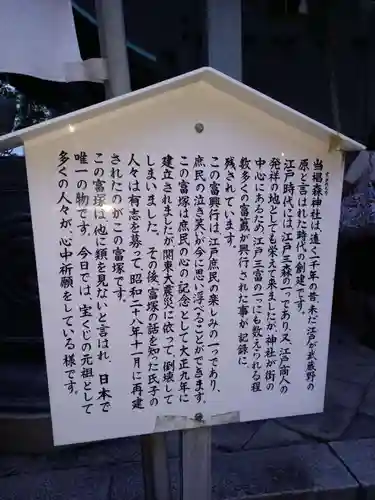 すぎのもり
当椙森神社は、遠く一千年の昔、未だ江戸が武蔵野の
原と言はれた時代の創建です。
江戸時代には、江戸三森の一つであり、又、江戸商人の
発祥の地としても栄えて来ましたが、神社が街の
中心にあるため、江戸三富の一つにも数えられる程
数多くの富籤が興行された事が記録に
残されています。
この富興行は、江戸庶民の楽しみの一つであり、
庶民の泣き笑いが今に思い浮べることができます。
この富塚は庶民の心の記念として大正九年に
建立されましたが関東大震災に依って、倒壊して
しまいました。その後富塚の話を知った氏子の
人々は有志を募って、昭和二十八年十一月に再建
されたのがこの富塚です。
この富塚は、他に類を見ないと言はれ、日本で
唯一の物です。今日では、宝くじの元祖として
多くの人々が、心中祈願をしている様です。